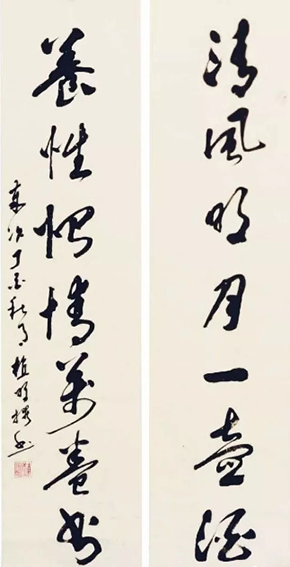 清風明月一壺酒
養性怡情萬卷書
歲次丁酉秋月